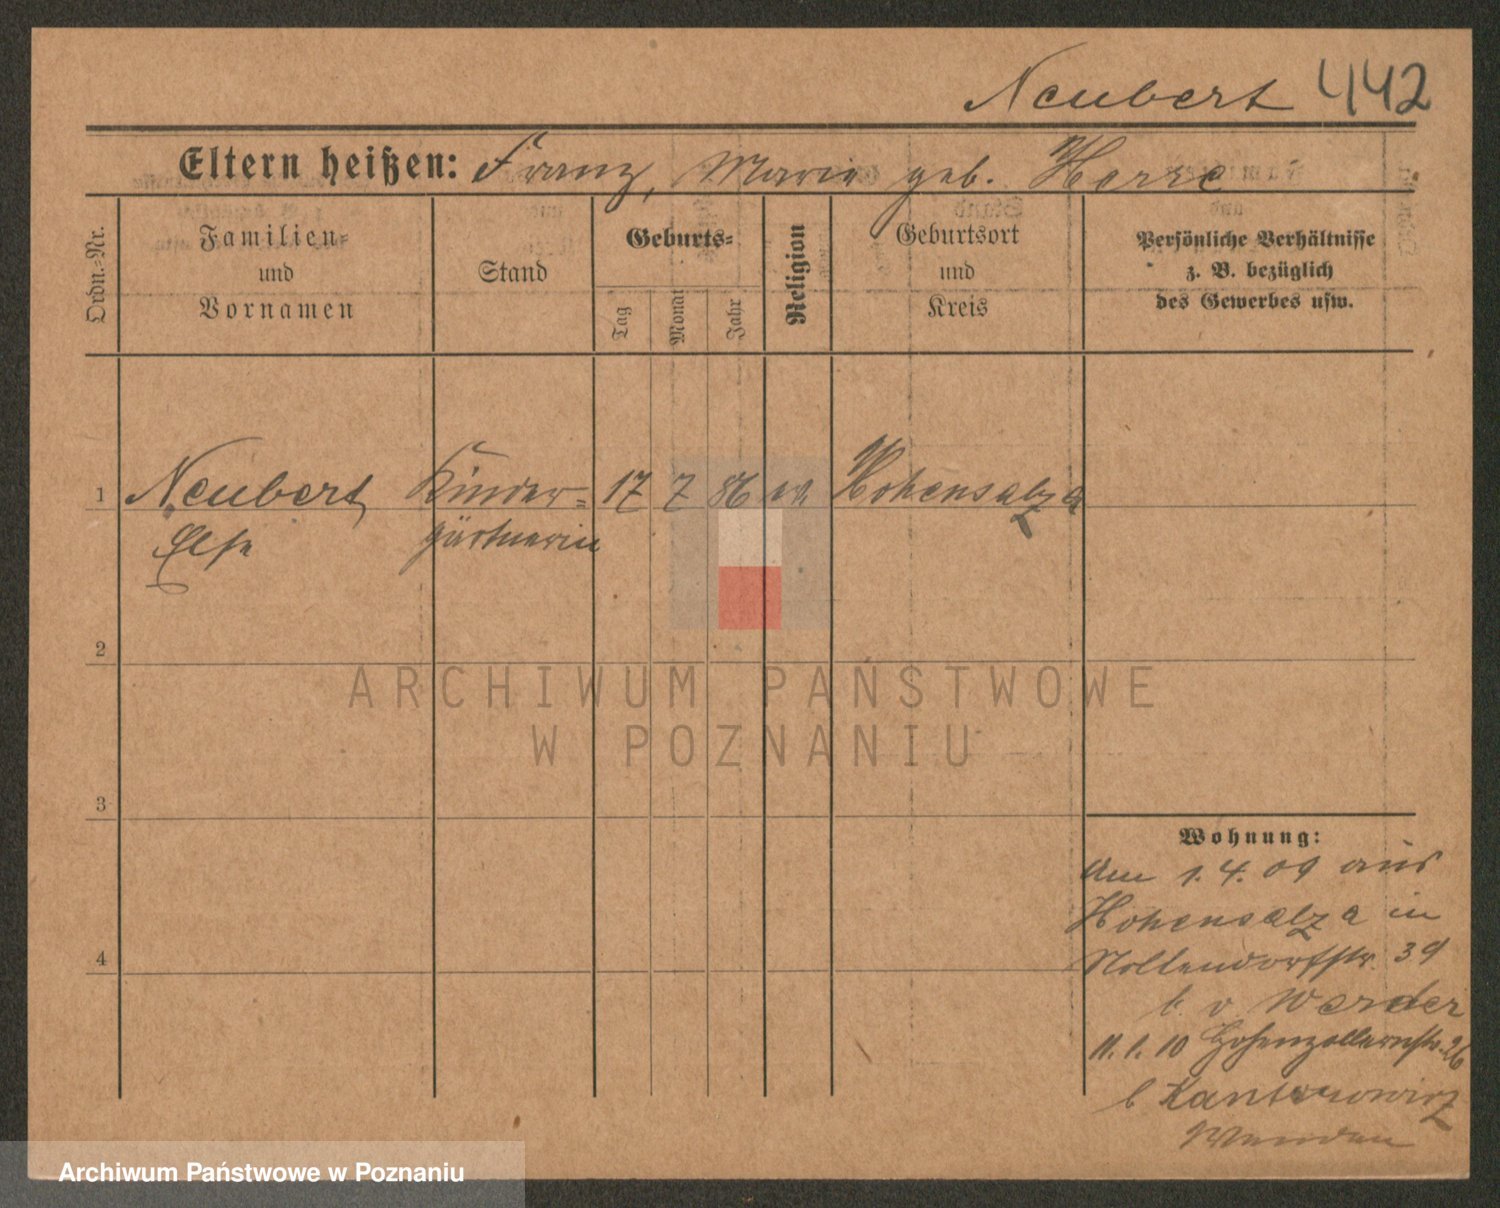 Neubert 442
Eltern heißen: Franz, Marie geb. Herre
Ordn.-Nr.
Familien-
und
Vornamen
Stand
Geburts-
Tag
Monat
Jahr
Religion
Geburtsort
und
Kreis
Persönliche Verhältnisse
z. B. bezüglich
des Gewerbes usw.
1 Neubert Kinder= 17 7 86 ev. Hohensalza
Else gärtnerin
2
ARCHIWUM PAŃSTWOWE
W POZNANIU
3
Wohnung:
Am 1.4.09 aus
Hohensalza in
4
Nollendorfstr. 39
b. v. Werder
11.1.10 Hohenzollernstr. 26
b Kantorowicz
Archiwum Państwowe w Poznaniu